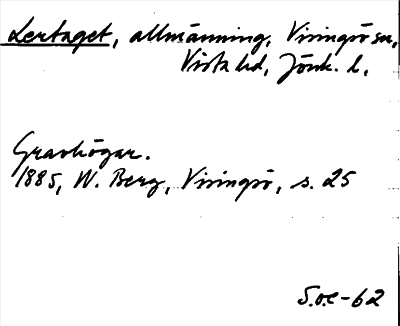 Lertaget, allmänning, Visingsö sn,
Vista hd, Jönk. l.
Gravhögar.
1885, W. Berg, Visingsö, s. 25
S.O.E-62